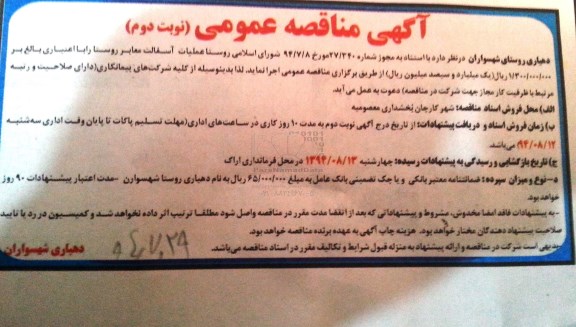 آگهی مناقصه عمومی (نوبت دوم)
دهیاری روستای شهسواران درنظر دارد با استناد به مجوز شماره ۲۷/۳۴۰مورخ ۹۴/۷/۸ شورای اسلامی روستا عملیات آسفالت معابر روستا رابا اعتباری بالغ بر
۱/۳۰۰/۰۰۰/۰۰۰ ریال(یک میلیارد و سیصد میلیون ریال) از طریق برگزاری مناقصه عمومی اجرا نماید. لذا بدینوسیله از کلیه شرکت‌های پیمانکاری(دارای صلاحیت و رتبه
مرتبط با ظرفیت کار مجاز جهت شرکت در مناقصه) دعوت به عمل می آید.
الف) محل فروش اسناد مناقصه: شهر کارچان بخشداری معصومیه
ب) زمان فروش اسناد و دریافت پیشنهادات: از تاریخ درج آگهی نوبت دوم به مدت ۱۰ روز کاری در ساعت‌های اداری(مهلت تسلیم پاکات تا پایان وقت اداری سه‌شنبه
۹۴/۰۸/۱۲) می‌باشد.
ج) تاریخ بازگشایی و رسیدگی به پیشنهادات رسیده: چهارشنبه ۱۳۹۴/۰۸/۱۳ در محل فرمانداری اراک
د-نوع و میزان سپرده: ضمانتنامه معتبربانکی و یا چک تضمینی بانک عامل به مبلغ ۶۵/۰۰۰/۰۰۰ ریال به نام دهیاری روستا شهسوارن -مدت اعتبار پیشنهادات ۹۰ روز
خواهد بود.
- به پیشنهادات فاقد امضا مخدوش، مشروط و پیشنهاداتی که بعد از انقضا مدت مقرر در مناقصه واصل شود مطلقا ترتیب اثر داده نخواهد شد و کمیسیون در رد یا تایید
صلاحیت پیشنهاد دهندگان مختار خواهد بود. هزینه چاپ آگهی به عهده برنده مناقصه خواهد بود.
بدیهی است شرکت در مناقصه و ارائه پیشنهاد به منزله قبول شرایط و تکالیف مقرر در اسناد مناقصه می‌باشد.
دهیاری شهسواران
۹۴،۷،۲۹